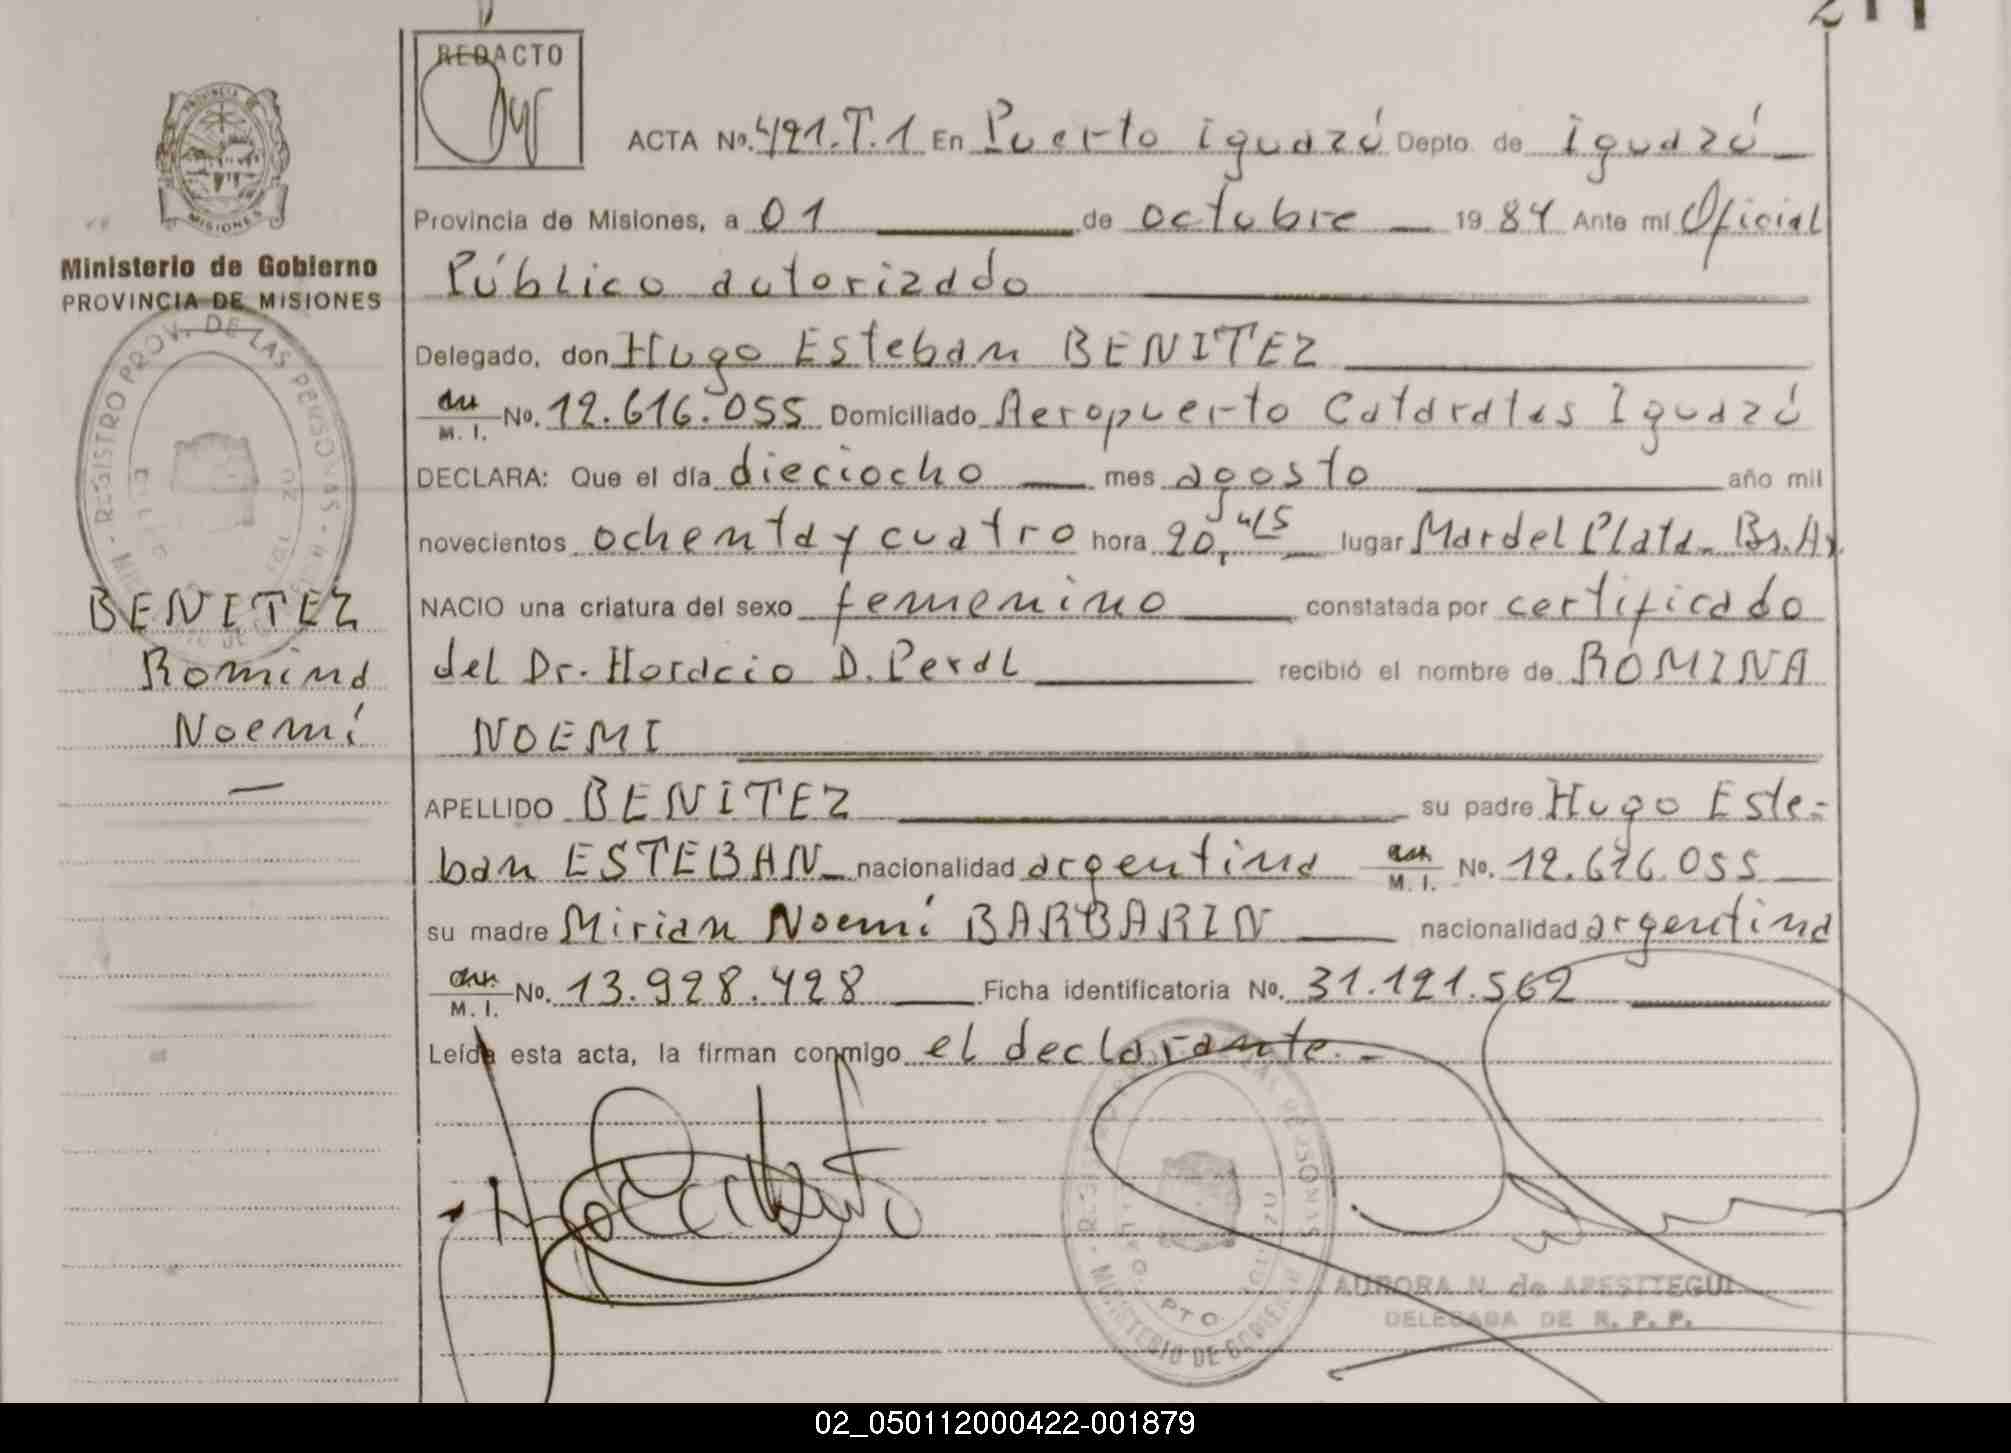 REDACTO
PROVINCIA DE
MISIONES
Ministerio de Gobierno
PROVINCIA DE MISIONES
REGISTRO PROV. DE LAS PERSONAS
BENITEZ
Romina
Noemí
—
ACTA No. 491.T.1 En Puerto iguazú Depto. de iguazú
Provincia de Misiones, a 01 de octubre 1984 Ante mí Oficial
Público autorizado
Delegado, don Hugo Esteban BENITEZ
M. I. No. 12.616.055 Domiciliado Aeropuerto Cataratas Iguazú
DECLARA: Que el día dieciocho mes agosto año mil
novecientos ochenta y cuatro hora 20,45 lugar Mar del Plata - Bs. As.
NACIO una criatura del sexo femenino constatada por certificado
del Dr. Horacio D. Peral recibió el nombre de ROMINA
NOEMI
APELLIDO BENITEZ su padre Hugo Este=
ban ESTEBAN nacionalidad argentina M. I. No. 12.616.055
su madre Mirian Noemí BARBARIN nacionalidad argentina
M. I. No. 13.928.428 Ficha identificatoria No. 31.121.562
Leída esta acta, la firman conmigo el declarante.-
MINISTERIO DE GOBIERNO
AURORA N. de ARESTTEGUI
DELEGADA DE R. P. P.
02_050112000422-001879